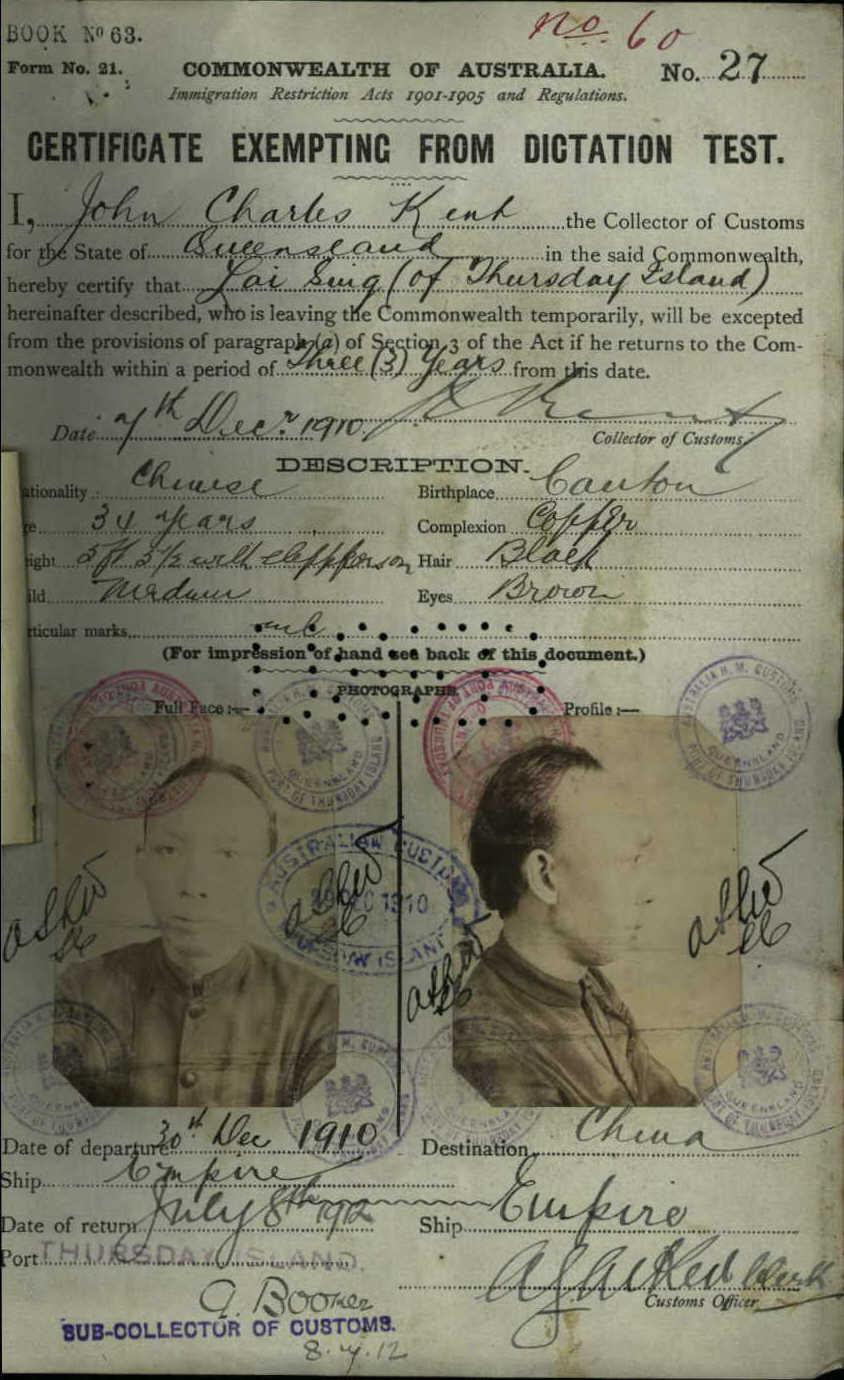 BOOK No 63.
no. 60
Form No. 21.
COMMONWEALTH OF AUSTRALIA.
No. 27
Immigration Restriction Acts 1901-1905 and Regulations.
CERTIFICATE EXEMPTING FROM DICTATION TEST.
I, John Charles Kent the Collector of Customs
for the State of Queensland in the said Commonwealth,
hereby certify that Lai Sing (of Thursday Island)
hereinafter described, who is leaving the Commonwealth temporarily, will be excepted
from the provisions of paragraph (a) of Section 3 of the Act if he returns to the Com-
monwealth within a period of Three (3) Years from this date.
Date 7th Decr 1910
Collector of Customs
DESCRIPTION.
ationality: Chinese Birthplace Canton
34 years Complexion Copper
ight 5ft 5½ with slippers on Hair Black
ild Medium Eyes Brown
ticular marks
(For impression of hand see back of this document.)
PHOTOGRAPHS.
Full Face:— Profile:—
AUSTRALIAN CUSTOMS
1910
Date of departure 30th Dec 1910 Destination China
Ship Empire
Date of return July 8th 1912 Ship Empire
Port THURSDAY ISLAND.
Clerk
Customs Officer
G. Booker
SUB-COLLECTOR OF CUSTOMS.
8.7.12